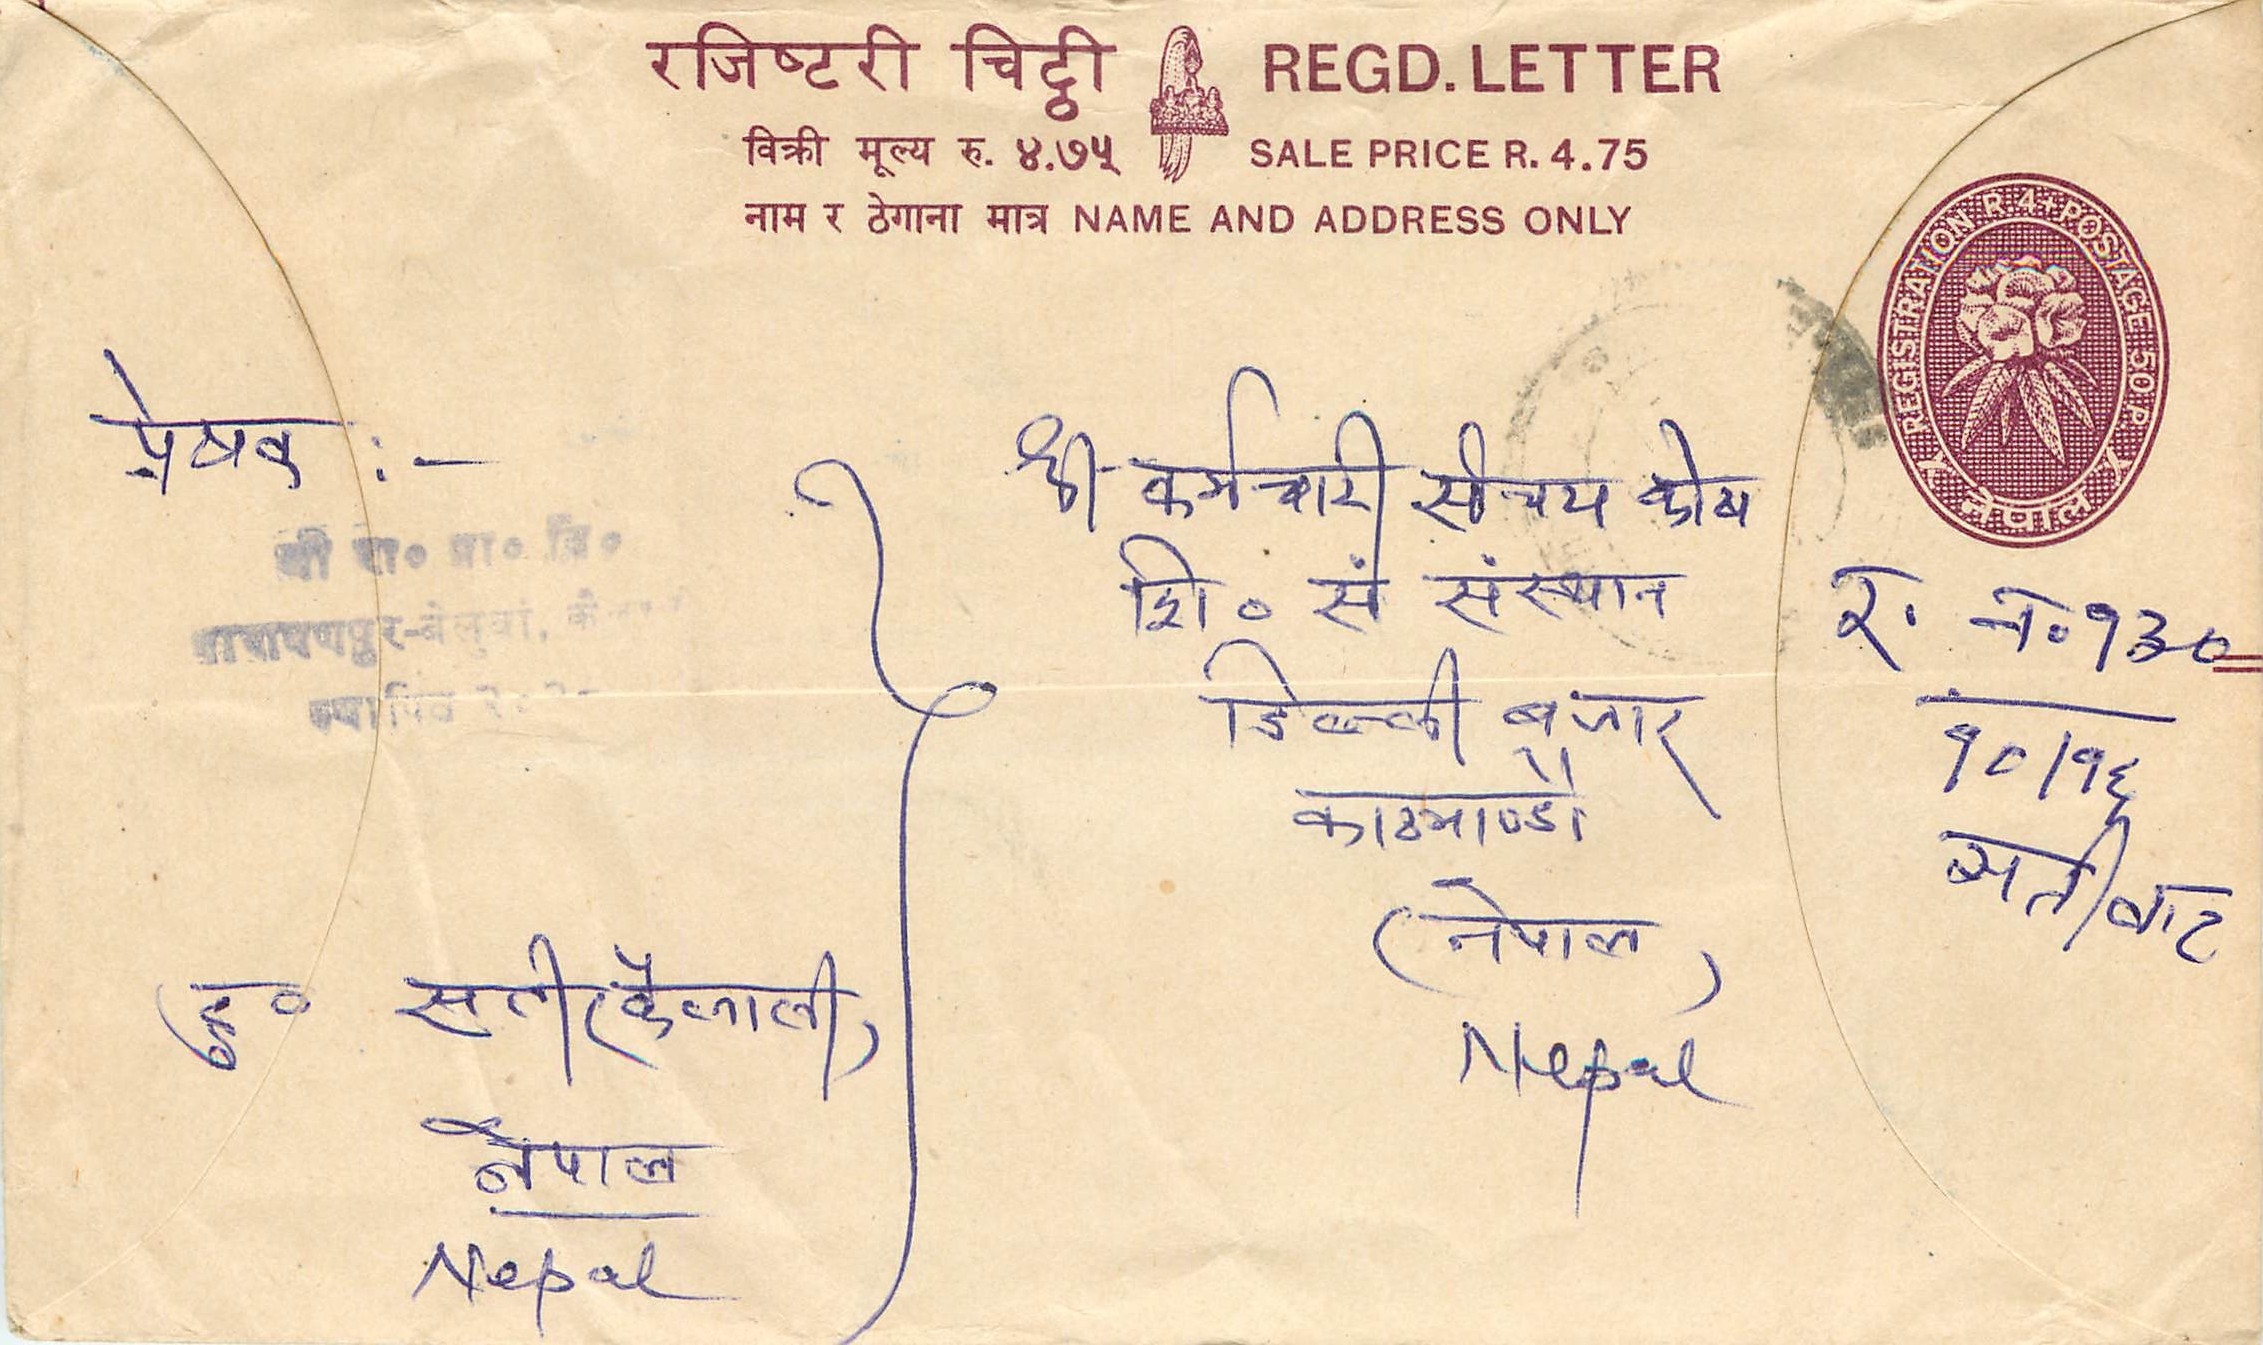 रजिष्टरी चिट्ठी REGD. LETTER
विक्री मूल्य रु. ४.७५ SALE PRICE R. 4.75
नाम र ठेगाना मात्र NAME AND ADDRESS ONLY
REGISTRATION R 4+POSTAGE 50 P.
नेपाल
प्रेषक :-
श्री रा० प्रा० वि०
नारायणपुर-बेलुवा,
श्री कर्मचारी संचय कोष
शि० सं संस्थान
डिल्ली बजार
काठमाण्डौ
(नेपाल)
Nepal
र. नं. १३०
१०/१६
सती बाट
हु० सती (कैलाली)
नेपाल
Nepal